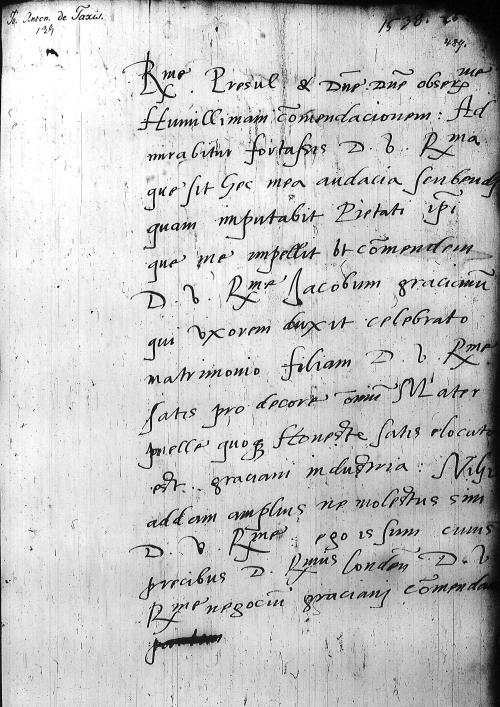 Jo. Anton. de Taxis.
1538. 20
139
489.
Rme Presul & Dne Dne obserme
Humillimam comendacionem: Ad
mirabitur fortassis D. V. Rma
que sit hec mea audacia scribendj
quam imputabit Pietati ipi
que me impellit vt comendem
D. V. Rme Jacobum gracianū
qui vxorem duxit celebrato
matrimonio filiam D V. Rme
satis pro decore omniū Mater
puelle quoq Honeste satis elocata
est. graciani industria: Nihil
addam amplius ne molestus sim
D. V. Rme ego is sum cuius
precibus D. Rmus londen D. V
Rme negociū gracianj comenda